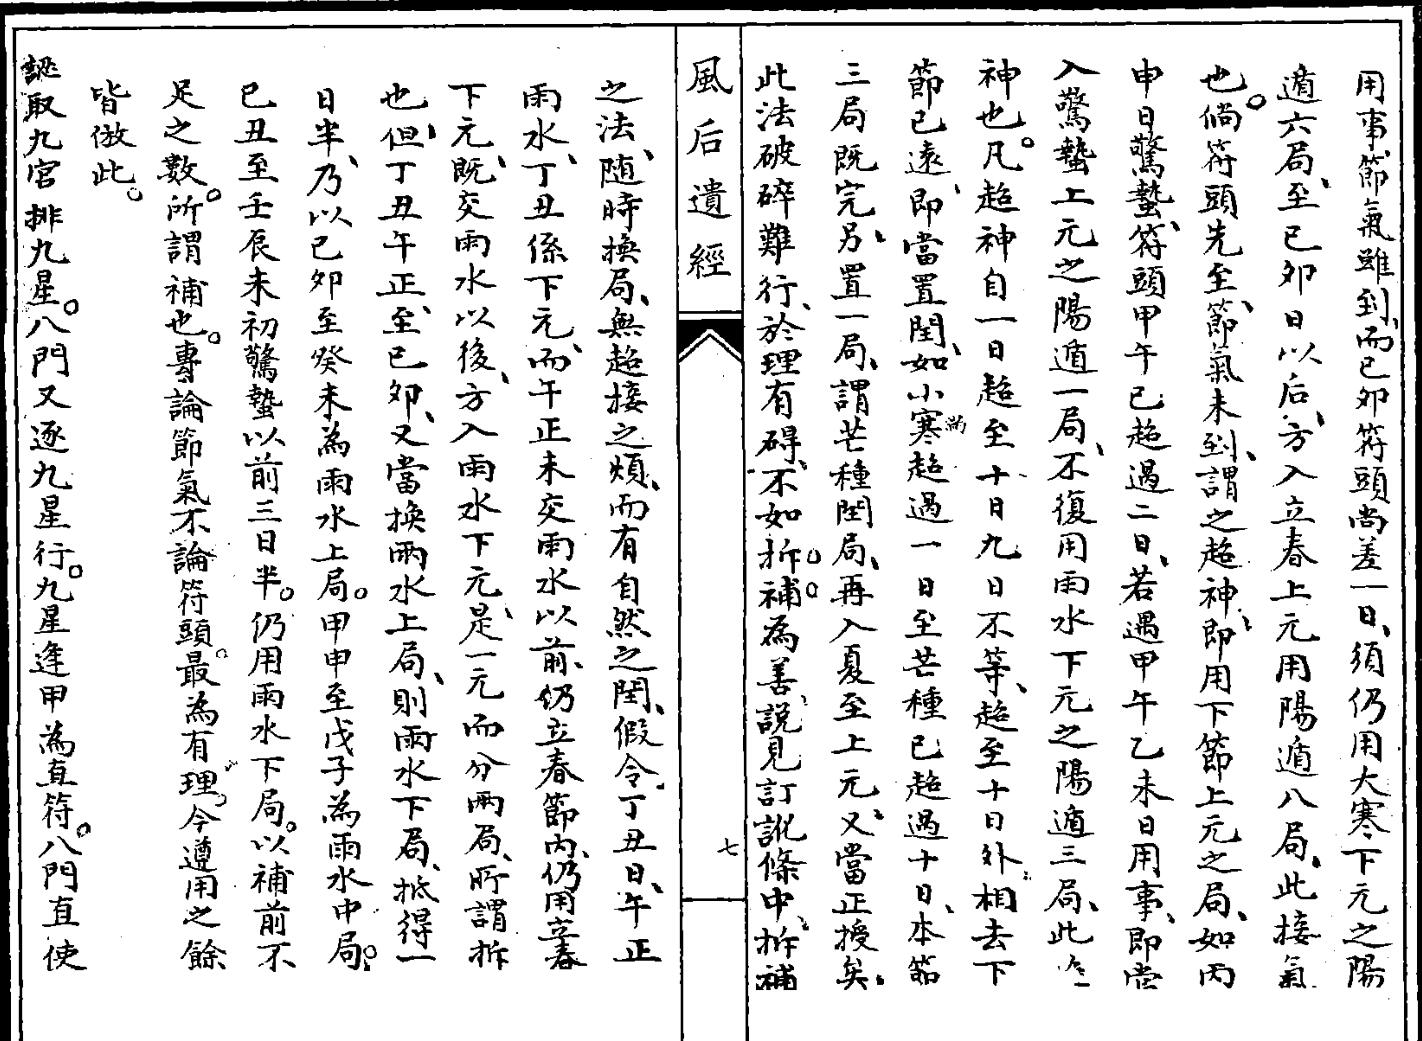 用事、節氣雖到、而已夘符頭尚差一日、須仍用大寒下元之陽
遁六局、至已夘日以后、方入立春上元用陽遁八局、此接氣
也。倘符頭先至、節氣未到、謂之超神、即用下節上元之局、如丙
申日驚蟄、符頭甲午已超過二日、若遇甲午乙未日用事、即當
入驚蟄上元之陽遁一局、不復用雨水下元之陽遁三局、此
神也。凡超神自一日超至十日九日不等、超至十日外、相去下
節已遠、即當置閏、如小寒超過一日至芒種已超過十日、本節
三局既完、另置一局、謂芒種閏局、再入夏至上元、又當正授矣、
此法破碎難行、於理有碍、不如拆補為善、說見訂訛條中、拆補
風后遺經
七
之法、隨時換局、無超接之煩、而有自然之閏、假令丁丑日、午正
雨水、丁丑係下元、而午正未交雨水以前、仍立春節內、仍用立春
下元、既交雨水以後、方入雨水下元、是一元而分兩局、所謂拆
也、但丁丑午正、至已夘、又當換雨水上局、則雨水下局、抵得一
日半、乃以已夘至癸未為雨水上局。甲申至戊子為雨水中局。
已丑至壬辰未初驚蟄以前三日半。仍用雨水下局。以補前不
足之數。所謂補也。專論節氣不論符頭。最為有理。今遵用之餘
皆倣此。
訣取九宮排九星。八門又逐九星行。九星逢甲為直符。八門直使